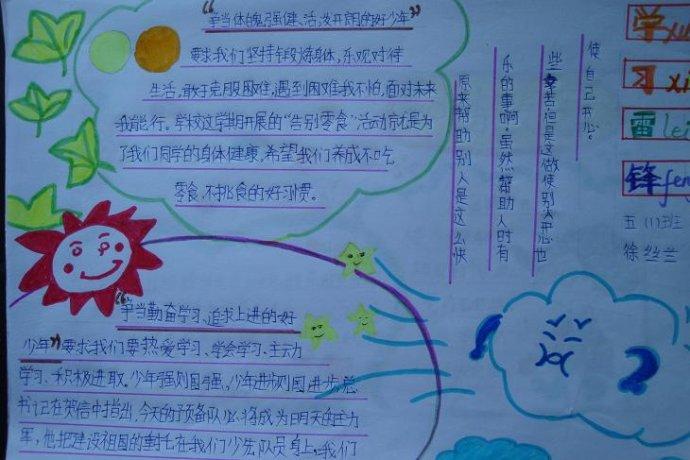 "争当体魄强健、活泼开朗的好少年"
要求我们坚持锻炼身体，乐观对待
生活，敢于克服困难，遇到困难我不怕，面对未来
我能行。学校这学期开展的"告别零食"活动就是为
了我们同学的身体健康，希望我们养成不吃
零食，不挑食的好习惯。
原来帮助别人是这么快
乐的事啊。虽然帮助人时有
些辛苦但是这做使别人开心也
使自己开心。
学xué
习xí
雷léi
锋fēng
五(1)班
徐丝兰
"争当勤奋学习、追求上进的好
少年"要求我们要热爱学习、学会学习、主动
学习、积极进取。少年强则国强，少年进步则国进步，总
书记在贺信中指出，今天的预备队必将成为明天的主力
军，他把建设祖国的重托在我们少先队员身上。我们